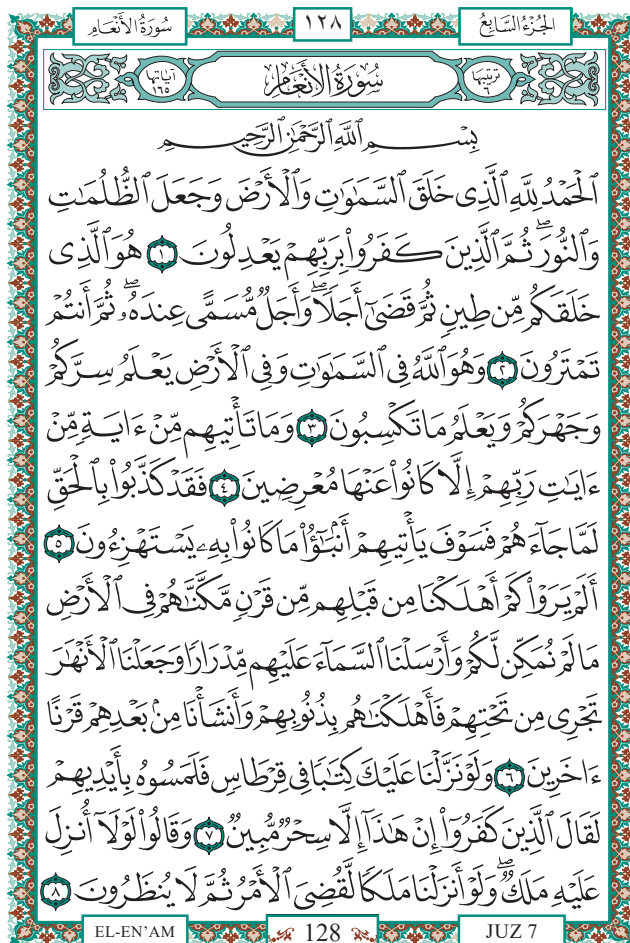 سُورَةُ الأَنْعَامِ ١٢٨ الجُزْءُ السَّابِعُ
آيَاتُهَا ١٦٥ سُورَةُ الأَنْعَامِ تَرْتِيبُهَا ٦
بِسْمِ ٱللَّهِ ٱلرَّحْمَٰنِ ٱلرَّحِيمِ
ٱلْحَمْدُ لِلَّهِ ٱلَّذِى خَلَقَ ٱلسَّمَٰوَٰتِ وَٱلْأَرْضَ وَجَعَلَ ٱلظُّلُمَٰتِ
وَٱلنُّورَ ۖ ثُمَّ ٱلَّذِينَ كَفَرُوا۟ بِرَبِّهِمْ يَعْدِلُونَ ١ هُوَ ٱلَّذِى
خَلَقَكُم مِّن طِينٍ ثُمَّ قَضَىٰٓ أَجَلًا ۖ وَأَجَلٌ مُّسَمًّى عِندَهُۥ ۖ ثُمَّ أَنتُمْ
تَمْتَرُونَ ٢ وَهُوَ ٱللَّهُ فِى ٱلسَّمَٰوَٰتِ وَفِى ٱلْأَرْضِ يَعْلَمُ سِرَّكُمْ
وَجَهْرَكُمْ وَيَعْلَمُ مَا تَكْسِبُونَ ٣ وَمَا تَأْتِيهِم مِّنْ ءَايَةٍ مِّنْ
ءَايَٰتِ رَبِّهِمْ إِلَّا كَانُوا۟ عَنْهَا مُعْرِضِينَ ٤ فَقَدْ كَذَّبُوا۟ بِٱلْحَقِّ
لَمَّا جَآءَهُمْ فَسَوْفَ يَأْتِيهِمْ أَنۢبَٰٓؤُا۟ مَا كَانُوا۟ بِهِۦ يَسْتَهْزِءُونَ ٥
أَلَمْ يَرَوْا۟ كَمْ أَهْلَكْنَا مِن قَبْلِهِم مِّن قَرْنٍ مَّكَّنَّٰهُمْ فِى ٱلْأَرْضِ
مَا لَمْ نُمَكِّن لَّكُمْ وَأَرْسَلْنَا ٱلسَّمَآءَ عَلَيْهِم مِّدْرَارًا وَجَعَلْنَا ٱلْأَنْهَٰرَ
تَجْرِى مِن تَحْتِهِمْ فَأَهْلَكْنَٰهُم بِذُنُوبِهِمْ وَأَنشَأْنَا مِنۢ بَعْدِهِمْ قَرْنًا
ءَاخَرِينَ ٦ وَلَوْ نَزَّلْنَا عَلَيْكَ كِتَٰبًا فِى قِرْطَاسٍ فَلَمَسُوهُ بِأَيْدِيهِمْ
لَقَالَ ٱلَّذِينَ كَفَرُوٓا۟ إِنْ هَٰذَآ إِلَّا سِحْرٌ مُّبِينٌ ٧ وَقَالُوا۟ لَوْلَآ أُنزِلَ
عَلَيْهِ مَلَكٌ ۖ وَلَوْ أَنزَلْنَا مَلَكًا لَّقُضِىَ ٱلْأَمْرُ ثُمَّ لَا يُنظَرُونَ ٨
EL-EN'AM 128 JUZ 7